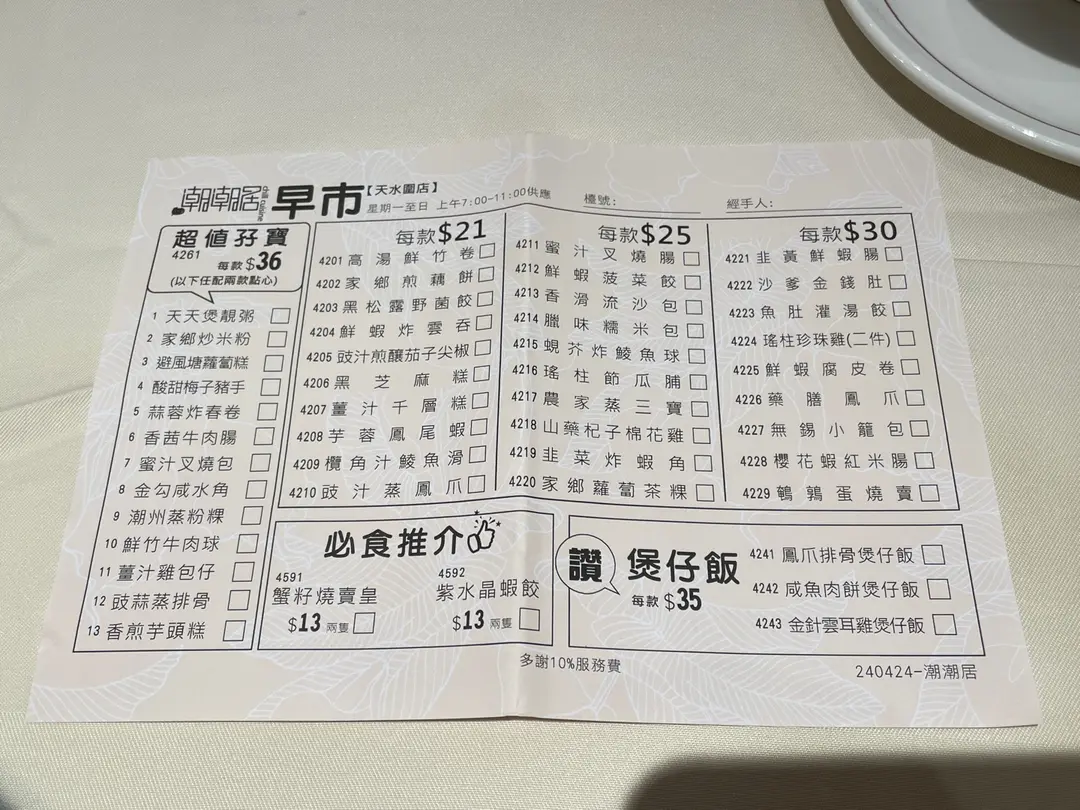 潮潮居 chill cuisine 早市【天水圍店】
星期一至日 上午7:00-11:00供應
檯號:
經手人:
超值孖寶
4261 每款$36
(以下任配兩款點心)
1 天天煲靚粥
2 家鄉炒米粉
3 避風塘蘿蔔糕
4 酸甜梅子豬手
5 蒜蓉炸春卷
6 香茜牛肉腸
7 蜜汁叉燒包
8 金勾咸水角
9 潮州蒸粉粿
10 鮮竹牛肉球
11 薑汁雞包仔
12 豉蒜蒸排骨
13 香煎芋頭糕
每款$21
4201 高湯鮮竹卷
4202 家鄉煎藕餅
4203 黑松露野菌餃
4204 鮮蝦炸雲吞
4205 豉汁煎釀茄子尖椒
4206 黑芝麻糕
4207 薑汁千層糕
4208 芋蓉鳳尾蝦
4209 欖角汁鯪魚滑
4210 豉汁蒸鳳爪
每款$25
4211 蜜汁叉燒腸
4212 鮮蝦菠菜餃
4213 香滑流沙包
4214 臘味糯米包
4215 蜆芥炸鯪魚球
4216 瑤柱節瓜脯
4217 農家蒸三寶
4218 山藥杞子棉花雞
4219 韭菜炸蝦角
4220 家鄉蘿蔔茶粿
每款$30
4221 韭黃鮮蝦腸
4222 沙爹金錢肚
4223 魚肚灌湯餃
4224 瑤柱珍珠雞(二件)
4225 鮮蝦腐皮卷
4226 藥膳鳳爪
4227 無錫小籠包
4228 櫻花蝦紅米腸
4229 鵪鶉蛋燒賣
必食推介
4591
蟹籽燒賣皇
$13 兩隻
4592
紫水晶蝦餃
$13 兩隻
讚 煲仔飯
每款$35
4241 鳳爪排骨煲仔飯
4242 咸魚肉餅煲仔飯
4243 金針雲耳雞煲仔飯
多謝10%服務費
240424-潮潮居